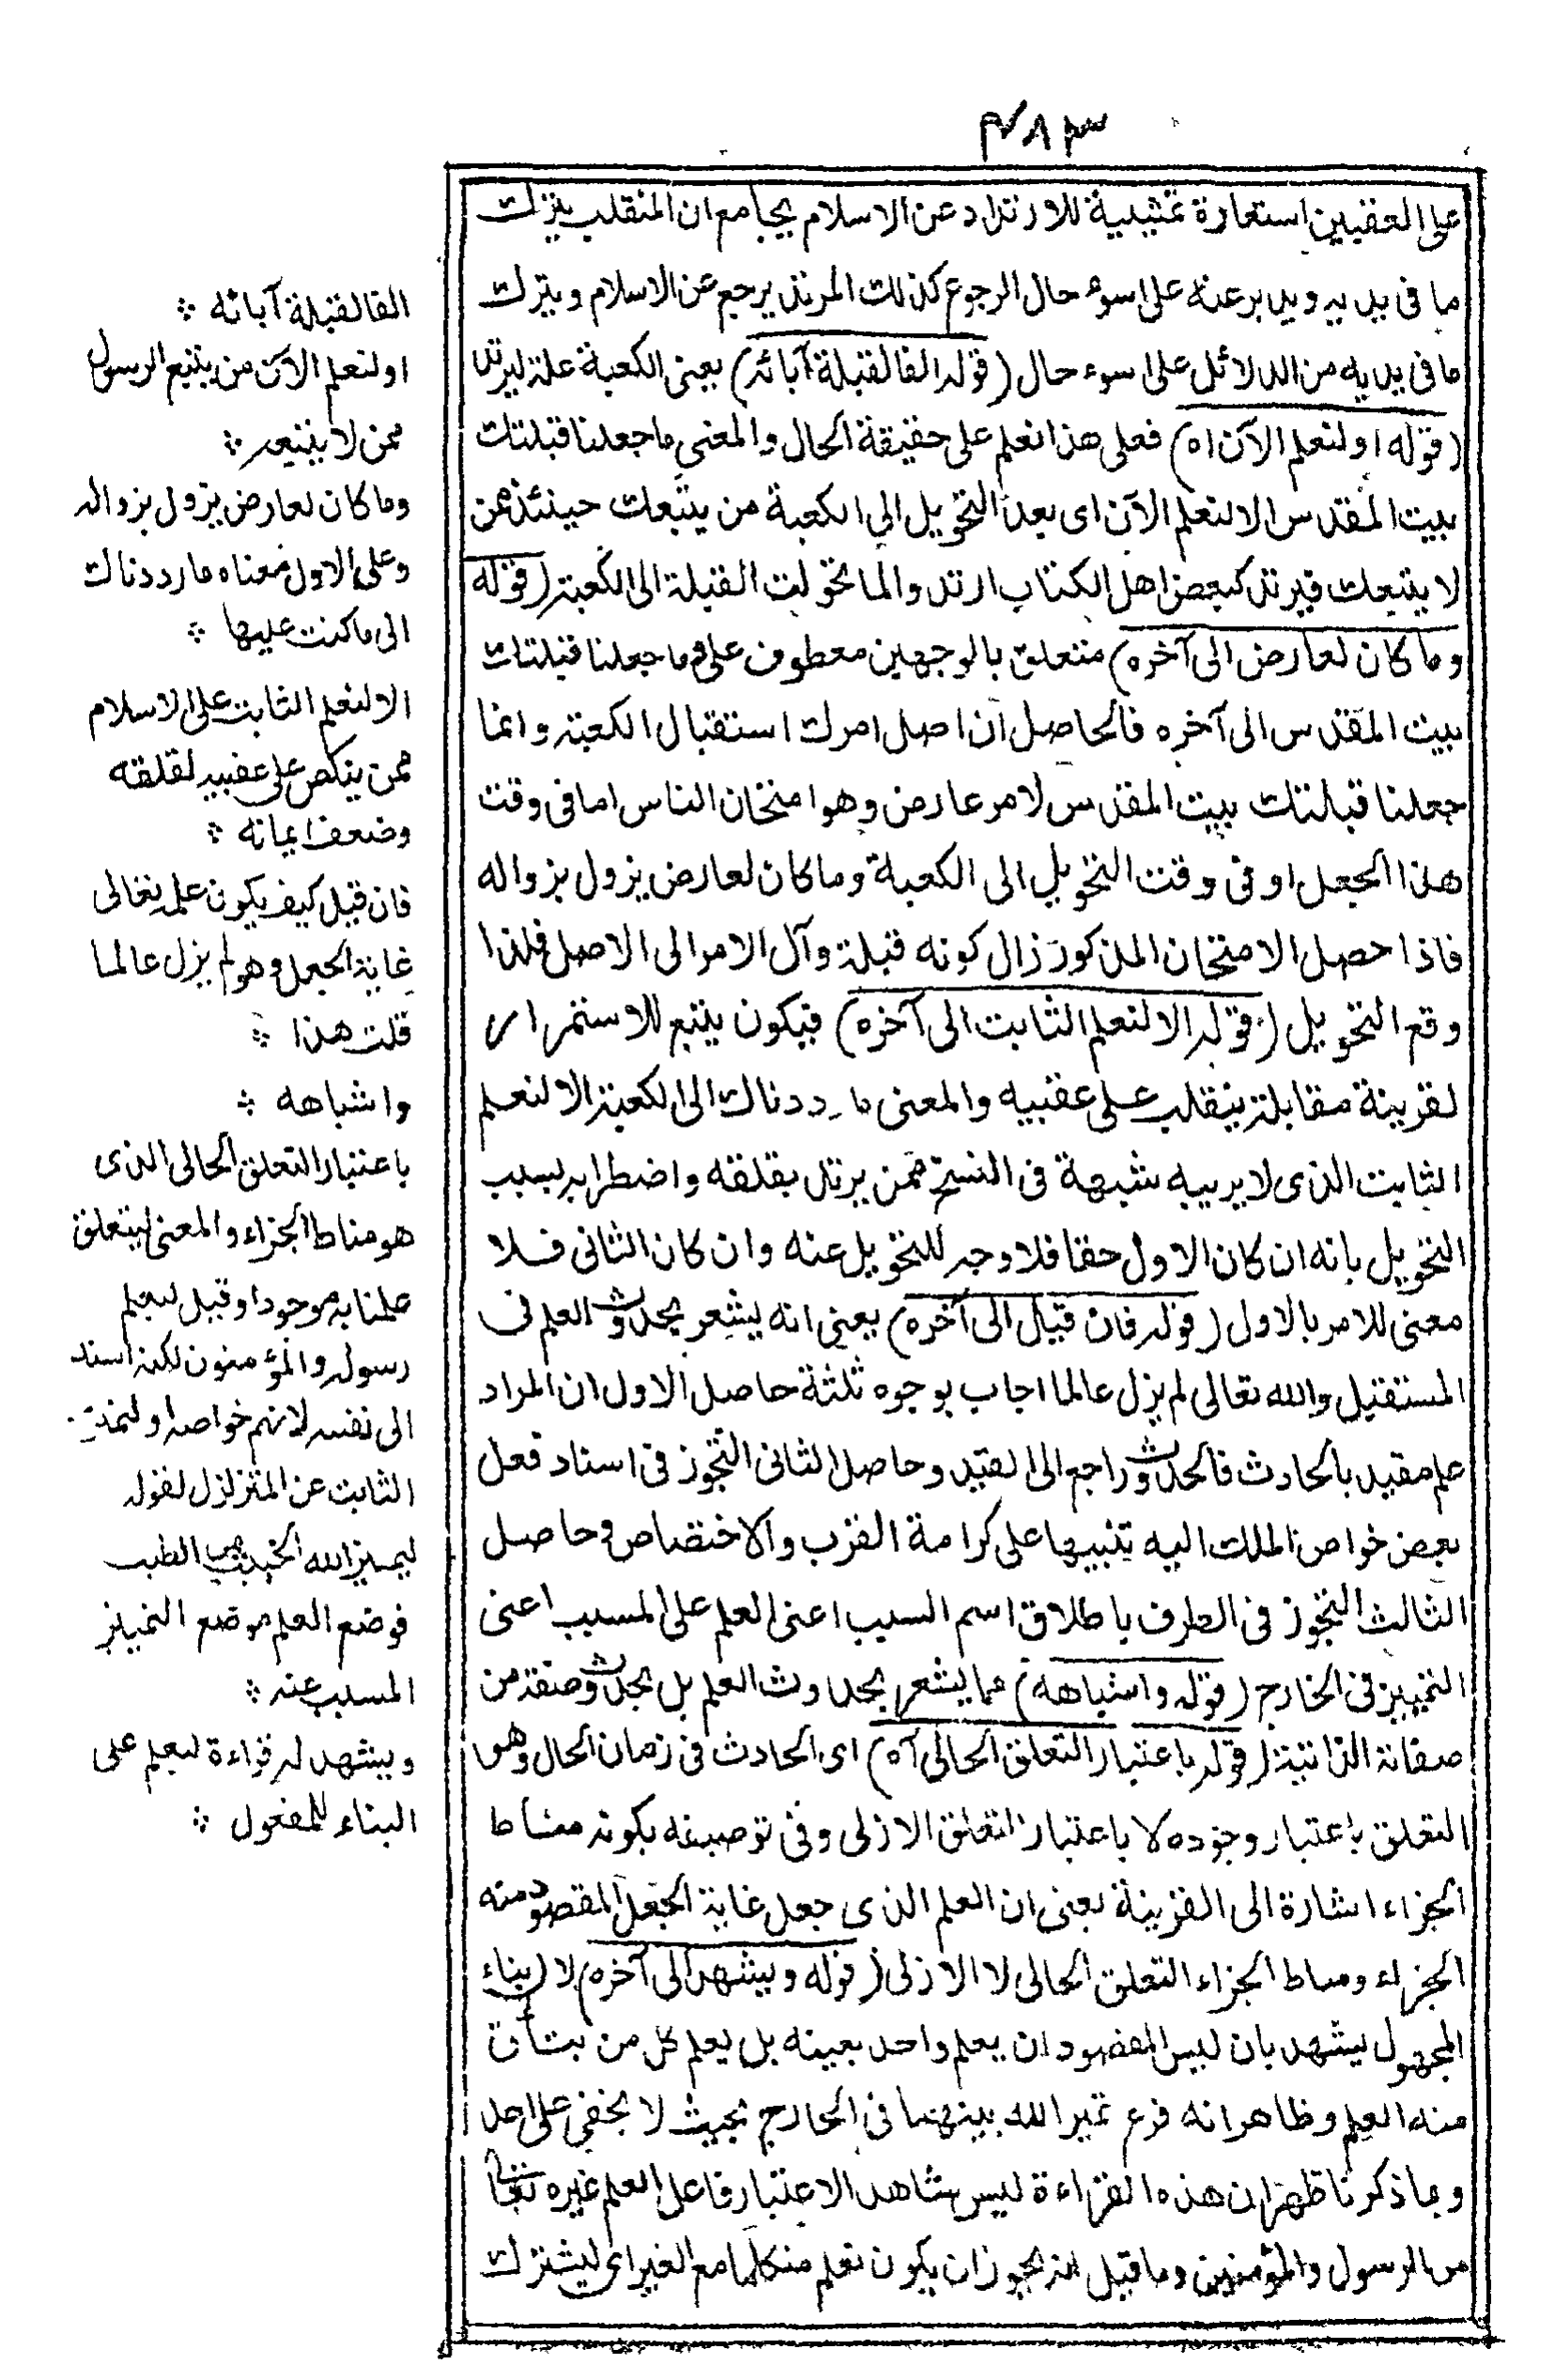 ٤٨٣
على العقبين استعارة تمثيلية للارتداد عن الاسلام بجامع ان المنقلب يترك
ما فى يديه ويدبر عنه على اسوء حال الرجوع كذلك المرتد يرجع عن الاسلام ويترك
ما فى يديه من الدلائل على اسوء حال (قوله الفا لقبلة آبائه) يعنى الكعبة علة ليرتد
(قوله او لنعلم الآن اه) فعلى هذا نعلم على حقيقة الحال والمعنى ما جعلنا قبلتك
بيت المقدس الا لنعلم الآن اى بعد التحويل الى الكعبة من يتبعك حينئذ ممن
لا يتبعك فيرتد كبعض اهل الكتاب ارتدوا لما تحولت القبلة الى الكعبة (قوله
وما كان لعارض الى آخره) متعلق بالوجهين معطوف على وما جعلنا قبلتك
بيت المقدس الى آخره فالحاصل ان اصل امرك استقبال الكعبة وانما
جعلنا قبلتك بيت المقدس لامر عارض وهو امتحان الناس اما فى وقت
هذا الجعل او فى وقت التحويل الى الكعبة وما كان لعارض يزول بزواله
فاذا حصل الامتحان المذكور زال كونه قبلة وآل الامر الى الاصل فلذا
وقع التحويل (قوله الا لنعلم الثابت الى آخره) فيكون يتبع للاستمرار
لقرينة مقابلة ينقلب على عقبيه والمعنى ما رددناك الى الكعبة الا لنعلم
الثابت الذى لا يريبه شبهة فى النسخ ممن يرتد بقلقه واضطرابه بسبب
التحويل بانه ان كان الاول حقا فلا وجه للتحويل عنه وان كان الثانى فلا
معنى للامر بالاول (قوله فان قيل الى آخره) يعنى انه يشعر بحدوث العلم فى
المستقبل والله تعالى لم يزل عالما اجاب بوجوه ثلثة حاصل الاول ان المراد
علم مقيد بالحادث فالحدوث راجع الى القيد وحاصل الثانى التجوز فى اسناد فعل
بعض خواص الملك اليه تنبيها على كرامة القرب والاختصاص وحاصل
الثالث التجوز فى الطرف باطلاق اسم السبب اعنى العلم على المسبب اعنى
التمييز فى الخارج (قوله واشباهه) مما يشعر بحدوث العلم بل بحدوث صفة من
صفاته الذاتية (قوله باعتبار التعلق الحالى آه) اى الحادث فى زمان الحال وهو
التعلق باعتبار وجوده لا باعتبار التعلق الازلى وفى توصيفه بكونه مناط
الجزاء اشارة الى القرينة يعنى ان العلم الذى جعل غاية الجعل المقصود منه
الجزاء ومناط الجزاء التعلق الحالى لا الازلى (قوله ويشهد الى آخره) لا (بناء
المجهول يشهد بان ليس المقصود ان يعلم واحد بعينه بل يعلم كل من يتأتى
منه العلم وظاهر انه فرع تميز الله بينهما فى الخارج بحيث لا يخفى على احد
وبما ذكرنا ظهر ان هذه القراءة ليس شاهد الاعتبار فاعل العلم غيره تعالى
من الرسول والمؤمنين وما قيل انه يجوز ان يكون نعلم متكلما مع الغير اى ليشترك
الفا لقبلة آبائه ⁘
او لنعلم الآن من يتبع الرسول
ممن لا يتبعه ⁘
وما كان لعارض يزول بزواله
وعلى الاول معناه ما رددناك
الى ما كنت عليها ⁘
الا لنعلم الثابت على الاسلام
ممن ينكص على عقبيه لقلقه
وضعف ايمانه ⁘
فان قيل كيف يكون علمه تعالى
غاية الجعل وهو لم يزل عالما
قلت هذا ⁘
واشباهه ⁘
باعتبار التعلق الحالى الذى
هو مناط الجزاء والمعنى ليتعلق
علمنا به موجودا وقيل ليعلم
رسوله والمؤمنون لكنه اسند
الى نفسه لانهم خواصه او لتميز
الثابت عن المتزلزل لقوله
ليميز الله الخبيث من الطيب
فوضع العلم موضع التمييز
المسبب عنه ⁘
ويشهد له قراءة ليعلم على
البناء للمفعول ⁘